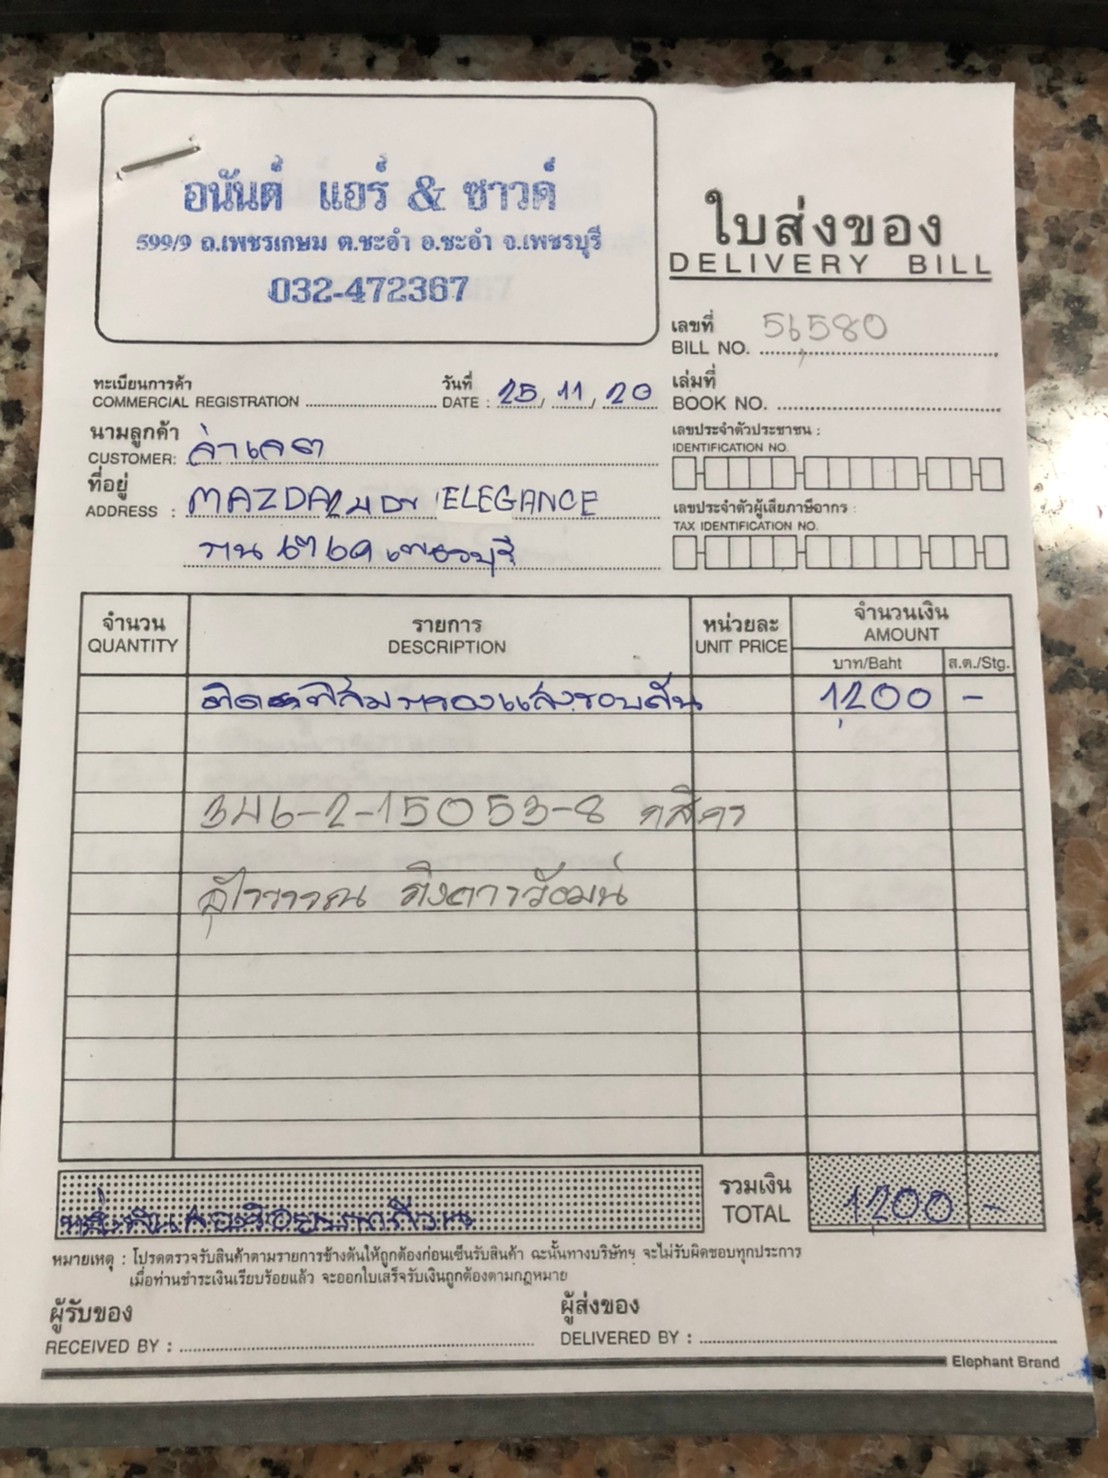 อนันต์ แอร์ & ซาวด์
599/9 ถ.เพชรเกษม ต.ชะอำ อ.ชะอำ จ.เพชรบุรี
032-472367
ใบส่งของ
DELIVERY BILL
เลขที่
BILL NO. 56580
ทะเบียนการค้า
COMMERCIAL REGISTRATION
วันที่
DATE : 25, 11, 20
เล่มที่
BOOK NO.
นามลูกค้า
CUSTOMER:
เลขประจำตัวประชาชน :
IDENTIFICATION NO.
ที่อยู่
ADDRESS : MAZDA ELEGANCE
เพชรบุรี
เลขประจำตัวผู้เสียภาษีอากร :
TAX IDENTIFICATION NO.
จำนวน
QUANTITY
รายการ
DESCRIPTION
หน่วยละ
UNIT PRICE
จำนวนเงิน
AMOUNT
บาท/Baht ส.ต./Stg.
ติดฟิล์มกรองแสงรอบคัน 1,200 -
346-2-15053-8 กสิกร
รวมเงิน
TOTAL 1,200 -
หมายเหตุ : โปรดตรวจรับสินค้าตามรายการข้างต้นให้ถูกต้องก่อนเซ็นรับสินค้า ฉะนั้นทางบริษัทฯ จะไม่รับผิดชอบทุกประการ
เมื่อท่านชำระเงินเรียบร้อยแล้ว จะออกใบเสร็จรับเงินถูกต้องตามกฎหมาย
ผู้รับของ
RECEIVED BY :
ผู้ส่งของ
DELIVERED BY :
Elephant Brand